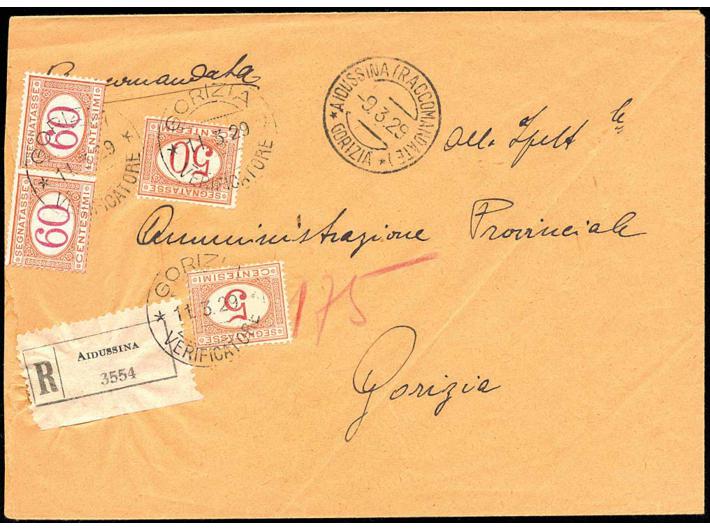 Raccomandata
AIDUSSINA (RACCOMANDATE)
-9.3.29
* GORIZIA *
SEGNATASSE
60
CENTESIMI
GORIZIA
11.3.29
VERIFICATORE
SEGNATASSE
60
CENTESIMI
CENTESIMI
50
SEGNATASSE
GORIZIA
* 11.3.29 *
VERIFICATORE
Alla Spett le
Amministrazione Provinciale
CENTESIMI
5
SEGNATASSE
GORIZIA
* 11.3.29
VERIFICATORE
175
R
AIDUSSINA
3554
Gorizia